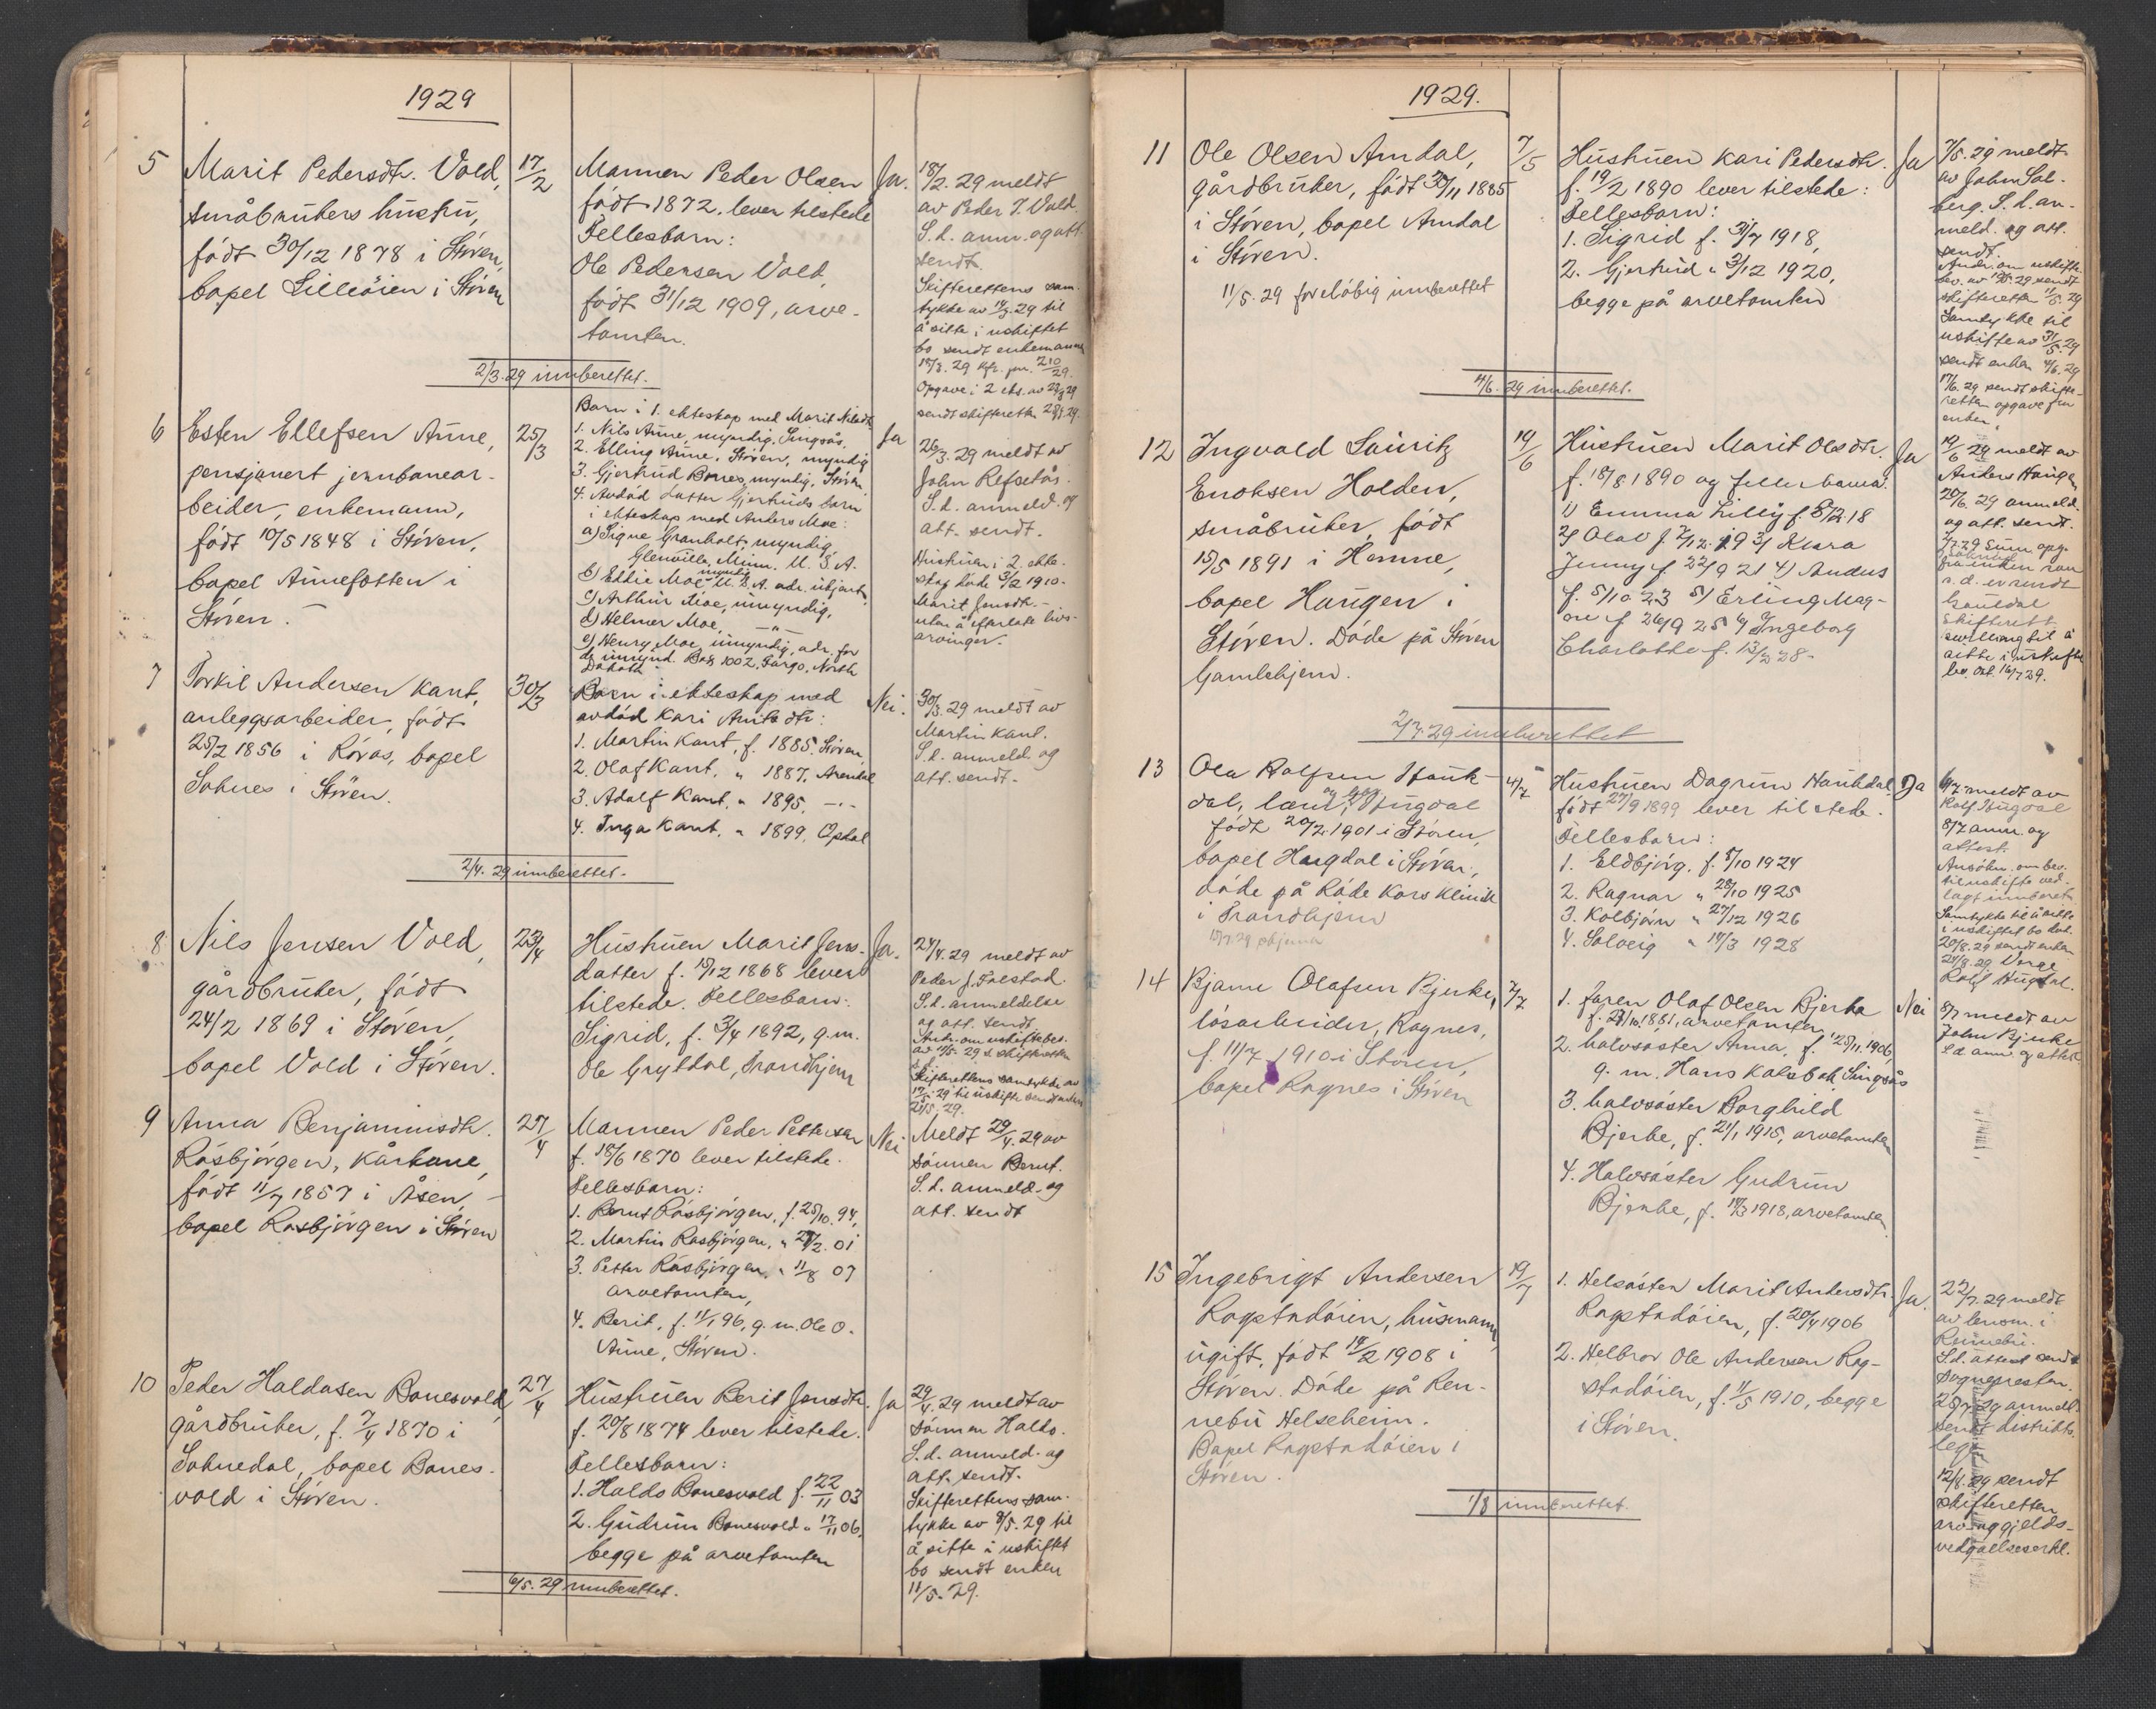 1929
5
Marit Pedersdtr. Vold,
småbrukers hustru,
født 30/12 1878 i Støren,
bopel Lilleøien i Støren
17/2
Mannen Peder Olsen
født 1872, lever tilstede
Fellesbarn:
Ole Pedersen Vold,
født 31/12 1909, arve-
tomten.
Ja.
18/2. 29 meldt
av Peder J. Vold.
S.d. anm. og att.
sendt.
Skifterettens sam-
tykke av 14/3. 29 til
å sitte i uskiftet
bo sendt enkemannen
Opgave i 2 eks. av
sendt skifteretten
2/3. 29 innberettet.
6
Esten Ellefsen Aune,
pensjonert jernbanear-
beider, enkemann,
født 10/5 1848 i Støren,
bopel Aunefossen i
Støren.
25/3
Barn i 1. ekteskap med Marit Nilsdtr.
1. Nils Aune, myndig, Singsås.
2. Elling Aune, Støren, myndig
3. Gjertrud Bones, myndig, Støren
4. Avdød datter Gjertruds barn
i ekteskap med Anders Moe:
a) Signe Granholt, myndig,
Glenville, Minn. U. S. A.
b) Eddie Moe myndig U. S. A. adr. ukjent,
c) Arthur Moe, umyndig,
d) Helmer Moe, -"-
e) Henry Moe, umyndig, adr. for
de umynd. Box 1002, Fargo, North
Dakota
Ja
26/3. 29 meldt av
John Refsetås.
S.d. anmeld. og
att. sendt.
Hustruen i 2. ekte-
skap døde 3/2 1910-
Marit Jensdtr. -
uten å efterlate livs-
arvinger.
7
Torkil Andersen Kant,
anleggsarbeider, født
25/2 1856 i Røros, bopel
Soknes i Støren.
30/3
Barn i ekteskap med
avdød Kari Arntsdtr:
1. Martin Kant, f. 1885. Støren,
2. Olaf Kant, " 1887, Arendal
3. Adolf Kant, " 1895, -"-
4. Inga Kant, " 1899, Opdal
Nei.
30/3. 29 meldt av
Martin Kant.
S.d. anmeld. og
att. sendt.
2/4. 29 innberettet.
8
Nils Jensen Vold,
gårdbruker, født
24/2 1869 i Støren,
bopel Vold i Støren.
23/4
Hustruen Marit Jens-
datter f. 15/12 1868 lever
tilstede. Fellesbarn:
Sigrid, f. 3/4 1892, g.m.
Ole Gryttdal, Trondhjem
Ja.
24/4. 29 meldt av
Peder J. Folstad.
S.d. anmeldelse
og att. sendt.
Skifterettens samtykke av
9
Anna Benjaminsdtr.
Råsbjørgen, kårkone,
født 11/7 1857 i Åsen,
bopel Rasbjørgen i Støren
27/4
Mannen Peder Pettersen
f. 18/6 1870 lever tilstede.
Fellesbarn:
1. Bernt Råsbjørgen, f. 25/10. 94,
2. Martin Rasbjørgen, " 27/2. 01
3. Petter Råsbjørgen, " 11/8 07
arvetomten,
4. Berit, f. 11/1 96, g.m. Ole O.
Aune, Støren.
Nei
Meldt 29/4. 29 av
sønnen Bernt.
S.d. anmeld. og
att. sendt
10
Peder Haldosen Bonesvold,
gårdbruker, f. 7/4 1870 i
Soknedal, bopel Bones-
vold i Støren.
27/4
Hustruen Berit Jonsdtr.
f. 20/8 1874 lever tilstede.
Fellesbarn:
1. Haldo Bonesvold f. 22/11 03
2. Gudrun Bonesvold " 17/11 06,
begge på arvetomten
Ja
29/4. 29 meldt av
sønnen Haldo.
S.d. anmeld. og
att. sendt.
Skifterettens sam-
tykke av 8/5. 29 til
å sitte i uskiftet
bo sendt enken
11/5. 29.
6/5. 29 innberettet.
1929.
11
Ole Olsen Amdal,
gårdbruker, født 30/11 1885
i Støren, bopel Amdal
i Støren.
11/5. 29 foreløbig innberettet
7/5
Hustruen Kari Pedersdtr.
f. 19/2 1890 lever tilstede:
Fellesbarn:
1. Sigrid f. 31/7 1918,
2. Gjertrud " 3/12 1920,
begge på arvetomten
Ja
7/5. 29 meldt
av John Sol-
berg. S.d. an-
meld. og att.
sendt.
Samtykke til
uskifte av 31/5. 29
sendt enken 4/6. 29
17/6. 29 sendt skifte-
retten opgave fra
enken.
4/6. 29 innberettet.
12
Ingvald Lauritz
Enoksen Holden,
småbruker, født
15/5 1891 i Hemne,
bopel Haugen i
Støren. Døde på Støren
Gamlehjem.
19/6
Hustruen Marit Olsdtr.
f. 18/8 1890 og fellesbarna:
1) Emma Lilly f. 8/2 18
2) Olav f. 2/12. 19 3) Klara
Jenny f 22/9 21 4) Andus
f. 5/10 23 5) Erling Mag-
ne f 26/9 25 6) Ingeborg
Charlotte f. 13/2 28-
Ja
19/6 29 meldt av
Anders Haugen
20/6. 29 anmeld.
og att. sendt.
Gauldal
skifterett
å
sitte i uskifte
bo. 16/7 29.
2/7. 29 innberettet
13
Ola Rolfsen Hauk-
dal, Hugdal
født 20/2 1901 i Støren,
bopel Haugdal i Støren,
døde på Røde Kors Klinik
i Trondhjem
4/7
Hustruen Dagrun Haukdal
født 27/9 1899 lever tilstede.
Fellesbarn:
1. Eldbjørg, f. 5/10 1924
2. Ragnar " 28/10 1925
3. Kolbjørn " 27/12 1926
4. Solveig " 14/3 1928
Ja
6/7 meldt av
Rolf Hugdal
8/7 anm. og
attest.
Samtykke til å sitte
i uskiftet bo
20/8. 29 sendt enken
Rolf Hugdal.
14
Bjarne Olafsen Bjerke,
løsarbeider, Ragnes,
f. 11/7 1910 i Støren,
bopel Ragnes i Støren
7/7
1. faren Olaf Olsen Bjerke
1881, arvetomten,
2. halvsøster Anna, f. 25/11. 1906,
g.m. Hans Kalsbak, Singsås
3. halvsøster Borghild
Bjerke, f. 21/1 1915, arvetomten
4. Halvsøster Gudrun
Bjerke, f. 14/3 1918, arvetomten
Nei
8/7 meldt av
John Bjerke
s.d. anm. og attest
15
Ingebrigt Andersen
Rogstadøien, husmann,
ugift, født 14/2 1908 i
Støren. Døde på Ren-
nebu Helseheim.
Bopel Rogstadøien i
Støren.
19/7
1. Helsøsten Marit Andersdtr.
Rogstadøien, f. 20/4 1906
2. Helbror Ole Andersen Rog-
stadøien, f. 11/5 1910, begge
i Støren.
Ja.
22/7. 29 meldt
av lensm. i
Rennebu.
S.d. attest sendt
sognepresten.
25/7 29 anmeld.
sendt distrikts-
lege
12/8. 29 sendt
skifteretten
arv- og gjelds-
vedgåelseserkl.
1/8 innberettet.